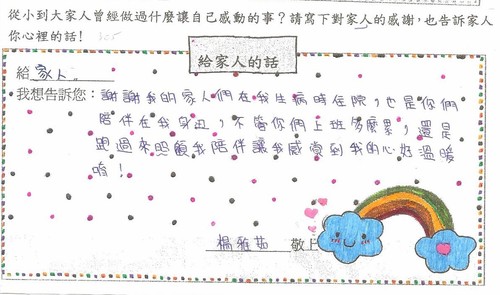 從小到大家人曾經做過什麼讓自己感動的事？請寫下對家人的感謝，也告訴家人
你心裡的話！
給家人的話
給家人。
我想告訴您：謝謝我的家人們在我生病時住院，也是你們
陪伴在我身邊，不管你們上班多麼累，還是
跑過來照顧我陪伴讓我感覺到我的心好溫暖
唷！
楊雅茹 敬上